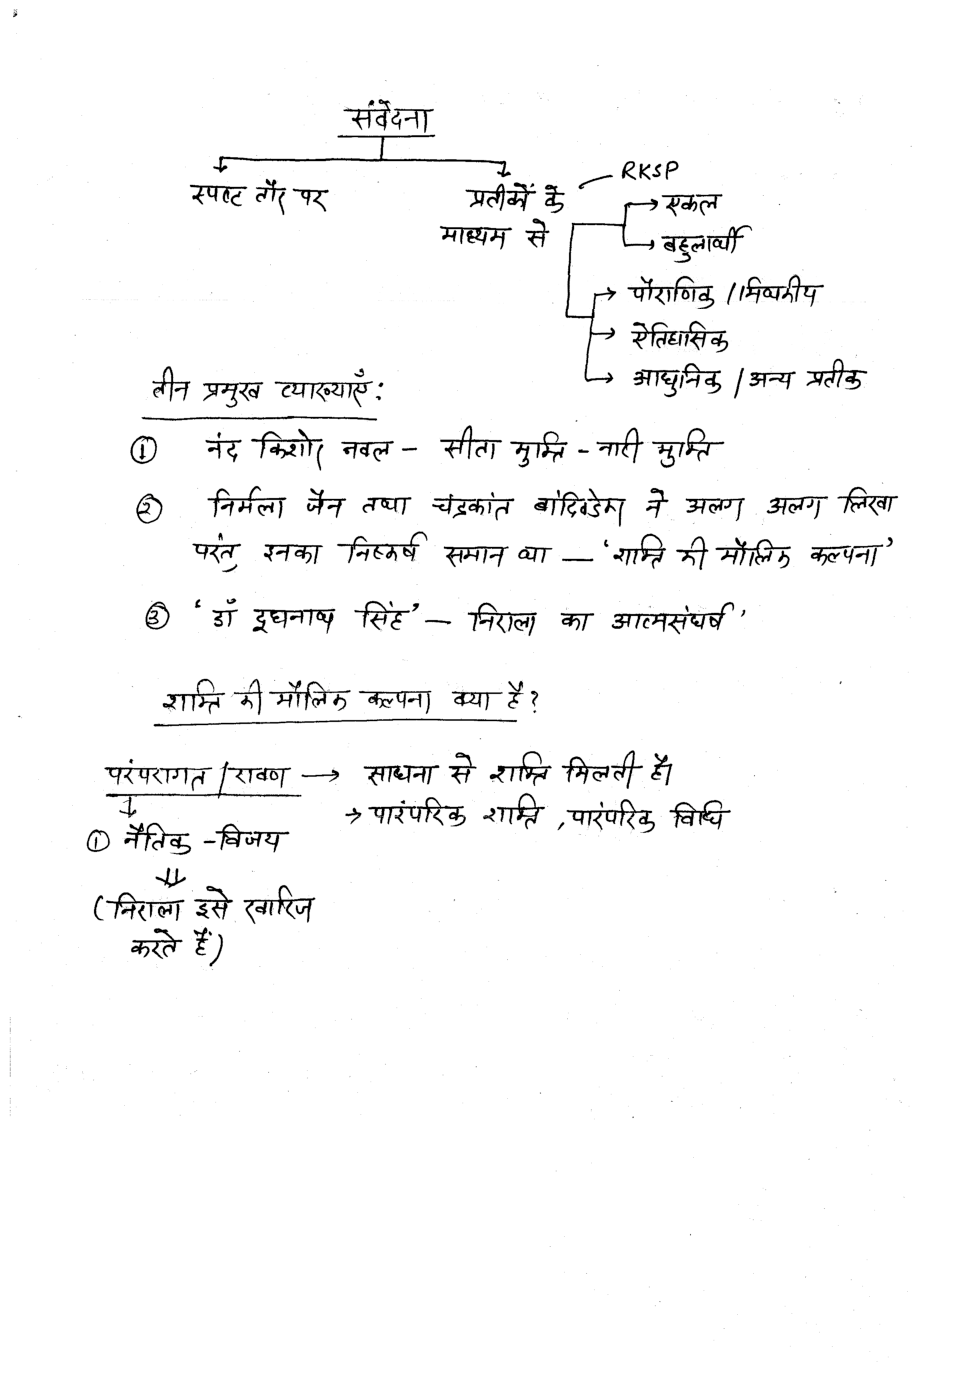 संवेदना
स्पष्ट तौर पर
प्रतीकों के माध्यम से
RKSP
एकल
बहुलार्थी
पौराणिक / मिथकीय
ऐतिहासिक
आधुनिक / अन्य प्रतीक
तीन प्रमुख व्याख्याएँ:
① नंद किशोर नवल - सीता मुक्ति - नारी मुक्ति
② निर्मला जैन तथा चंद्रकांत बांदिवडेकर ने अलग अलग लिखा
परंतु इनका निष्कर्ष समान था — 'शक्ति की मौलिक कल्पना'
③ 'डॉ दूधनाथ सिंह' — निराला का आत्मसंघर्ष'
शक्ति की मौलिक कल्पना क्या है?
परंपरागत / रावण → साधना से शक्ति मिलती है।
→ पारंपरिक शक्ति, पारंपरिक विधि
① नैतिक - विजय
(निराला इसे खारिज
करते हैं)